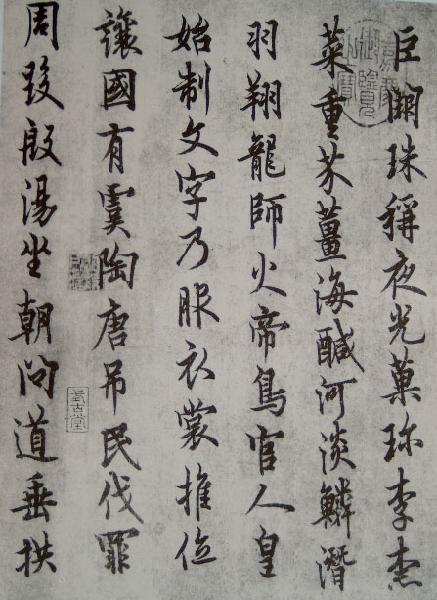 巨闕珠稱夜光菓珎李柰
菜重芥薑海醎河淡鱗潛
羽翔龍師火帝鳥官人皇
始制文字乃服衣裳推位
讓國有虞陶唐吊民伐罪
周發殷湯坐朝問道垂拱